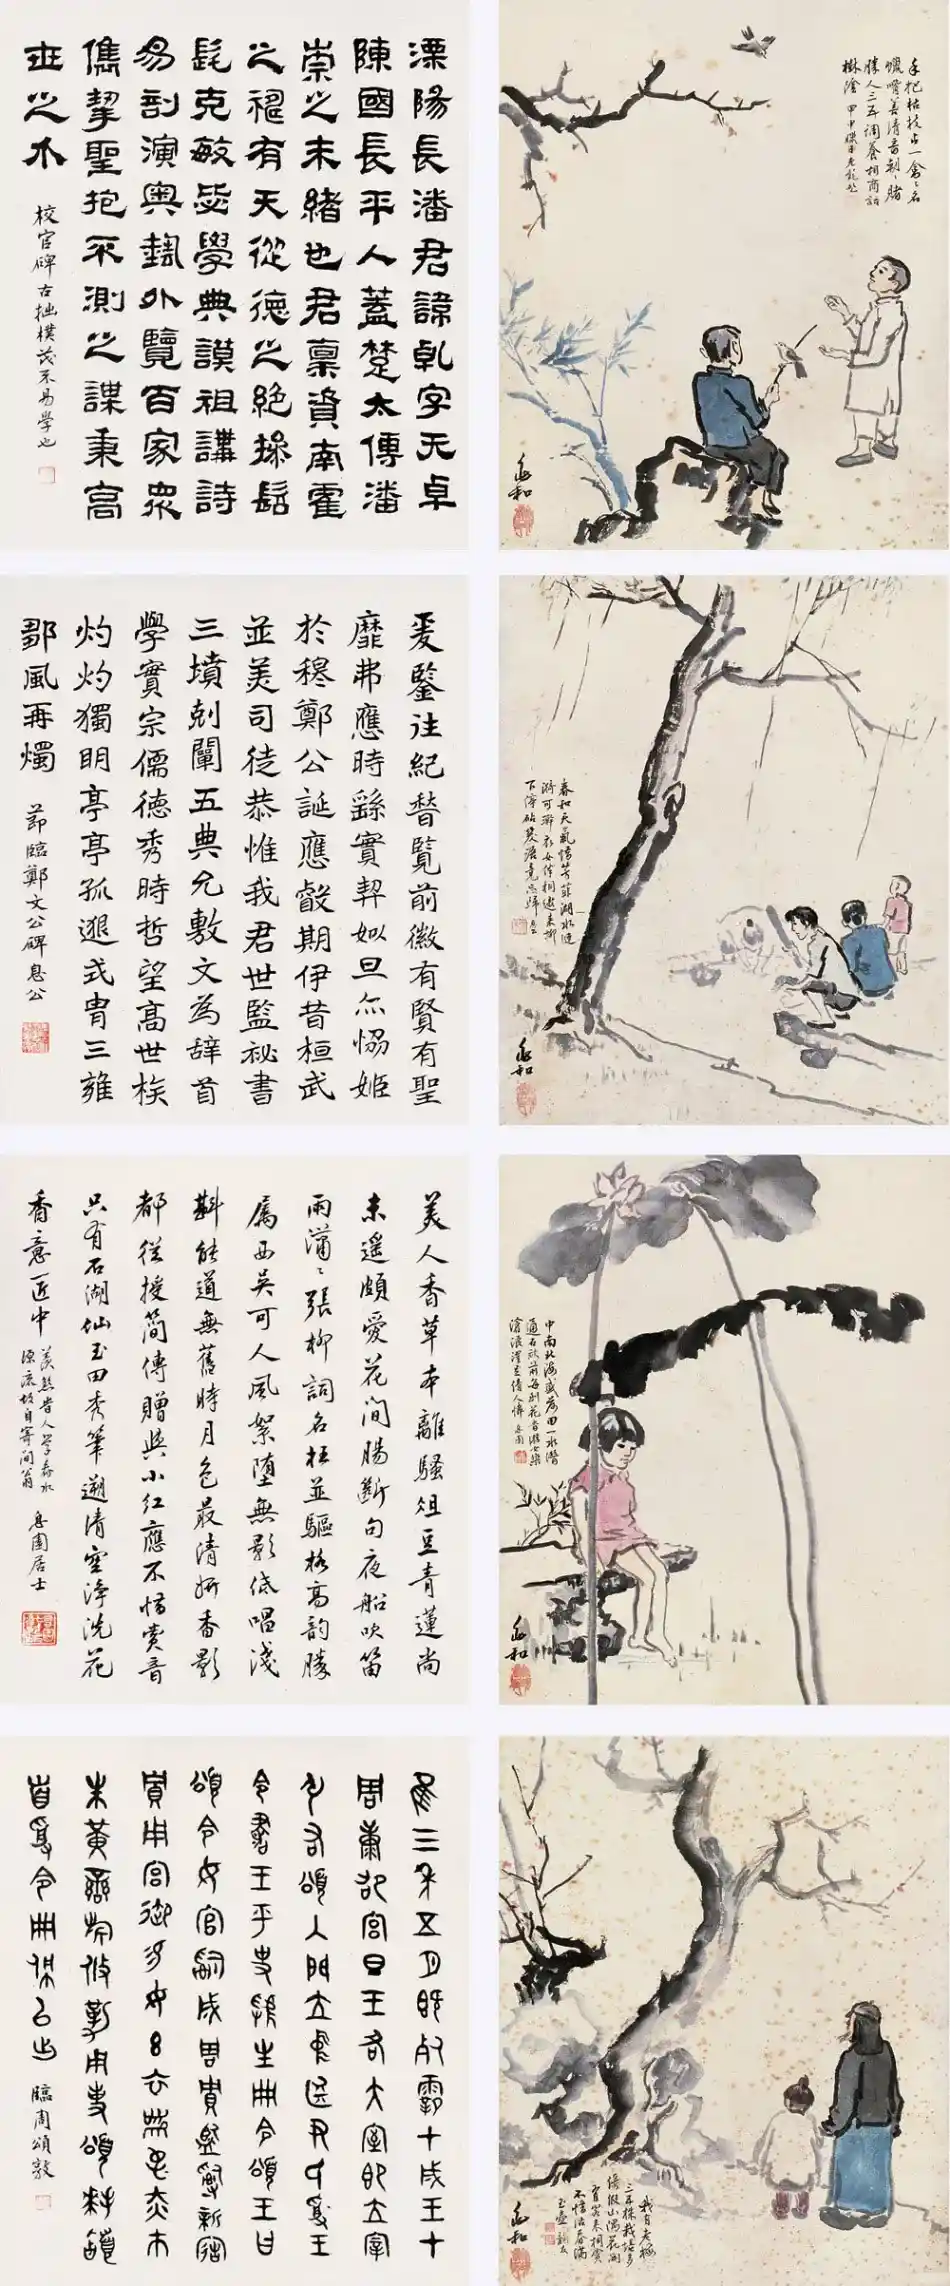 溧陽長潘君諱乹字元卓
陳國長平人蓋楚太傅潘
崇之末緒也君禀資南霍
之神有天從德之絕操髫
髦克敏志學典謨祖講詩
易剖演奧藝外覽百家衆
儁挈聖抱不測之謀秉高
世之介
校官碑古拙樸茂不易學也
手把枯枝占一禽禽名
蠟嘴善清音朝朝賭
勝人三五調養相商話
樹陰 甲申
兆和
爰鑒往紀稽覽前徽有賢有聖
靡弗應時繇實契姒旦亦協姬
於穆鄭公誕應叡期伊昔桓武
並美司徒恭惟我君世監祕書
三墳剋闡五典允敷文為辞首
學實宗儒德秀時哲望高世族
灼灼獨明亭亭孤邈式胄三雍
鄒風再燭
節臨鄭文公碑息公
春和天氣情芳菲湖水漣
漪可澣衣女伴相邀来柳
下停砧笑語竟忘歸
兆和
美人香草本離騷俎豆青蓮尚
未遙頗愛花間腸斷句夜船吹笛
雨瀟瀟張柳詞名枉並驅格高韵勝
屬西吳可人風絮墮無影低唱淺
斟能道無舊時月色最清妍香影
都從授簡傳贈與小紅應不惜賞音
只有石湖仙玉田秀筆遡清空淨洗花
香意匠中
羨煞昔人學春水
源流故自寄閒翁 息園居士
中南北海盛荷田一水潛
通石前每到花香游女樂
滄浪濯足倩人憐 息園
兆和
隹三年五月既死霸甲戌王才
周康卲宮旦王各大室即立宰
弘右頌入門立中廷尹氏受王
令書王乎史虢生冊令頌王曰
頌令女官𤔲成周貯監𤔲新寤
貯用宮御易女玄衣黹屯赤巿
朱黃鑾旂攸勒用事頌拜稽
首受令冊佩以出
臨周頌敦
我有老梅
三五株栽培多
傍假山隅花開
客来相賞
不惜沽春滿
玉壺
兆和